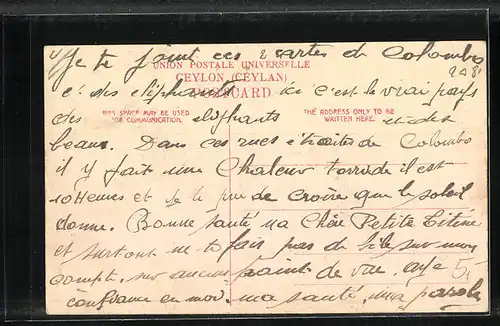 Je te joint ces 2 cartes de Colombo
UNION POSTALE UNIVERSELLE
CEYLON (CEYLAN)
et des éléphants
POSTCARD
ici c'est le vrai pays
THIS SPACE MAY BE USED
FOR COMMUNICATION.
THE ADDRESS ONLY TO BE
WRITTEN HERE.
des éléphants et des
beaux. Dans ces rues étroites de Colombo
il y fait une Chaleur torride il est
10 Heures et je te prie de croire que le soleil
donne. Bonne santé ma Chère Petite Titine
et surtout ne te fais pas de bile sur mon
compte, sur aucun point de vue, aye
confiance en moi. ma santé, ma parole